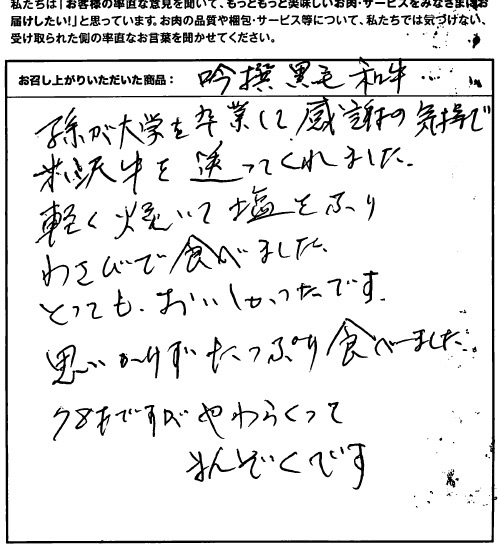 私たちは「お客様の率直な意見を聞いて、もっともっと美味しいお肉・サービスをみなさまにお
届けしたい!」と思っています。お肉の品質や梱包・サービス等について、私たちでは気づけない、
受け取られた側の率直なお言葉を聞かせてください。
お召し上がりいただいた商品: 吟撰黒毛和牛
孫が大学を卒業して感謝の気持で
米沢牛を送ってくれました。
軽く焼いて塩をふり
わさびで食べました。
とっても、おいしかったです。
思いがけずたっぷり食べました
78才ですがやわらくって
まんぞくです